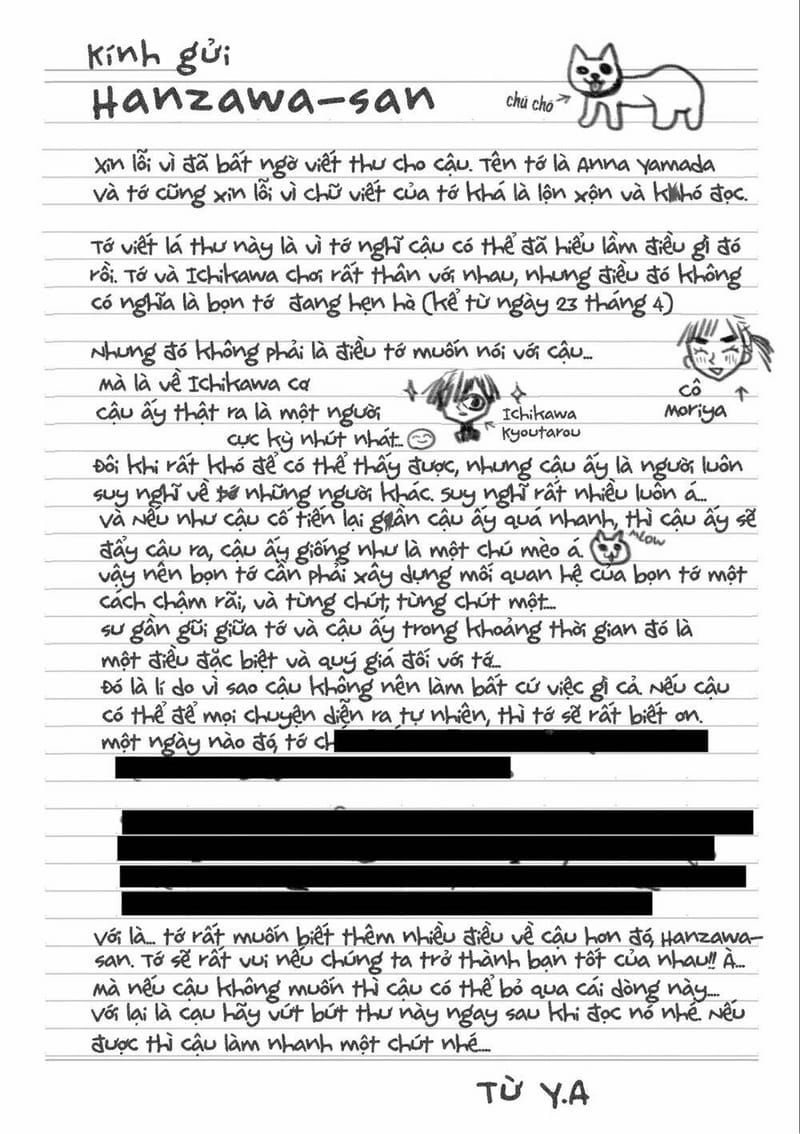 Kính gửi
Hanzawa-san
chú chó
Xin lỗi vì đã bất ngờ viết thư cho cậu. Tên tớ là Anna Yamada
và tớ cũng xin lỗi vì chữ viết của tớ khá là lộn xộn và khó đọc.
Tớ viết lá thư này là vì tớ nghĩ cậu có thể đã hiểu lầm điều gì đó
rồi. Tớ và Ichikawa chơi rất thân với nhau, nhưng điều đó không
có nghĩa là bọn tớ đang hẹn hò (kể từ ngày 23 tháng 4)
Nhưng đó không phải là điều tớ muốn nói với cậu...
cô
Moriya
mà là về Ichikawa cơ
cậu ấy thật ra là một người
cực kỳ nhút nhát...
Ichikawa
Kyoutarou
Đôi khi rất khó để có thể thấy được, nhưng cậu ấy là người luôn
suy nghĩ về những người khác. suy nghĩ rất nhiều luôn á...
và Nếu như cậu cố tiến lại gần cậu ấy quá nhanh, thì cậu ấy sẽ
đẩy cậu ra, cậu ấy giống như là một chú mèo á.
meow
vậy nên bọn tớ cần phải xây dựng mối quan hệ của bọn tớ một
cách chậm rãi, và từng chút, từng chút một...
sự gần gũi giữa tớ và cậu ấy trong khoảng thời gian đó là
một điều đặc biệt và quý giá đối với tớ...
Đó là lí do vì sao cậu không nên làm bất cứ việc gì cả. Nếu cậu
có thể để mọi chuyện diễn ra tự nhiên, thì tớ sẽ rất biết ơn.
một ngày nào đó, tớ
Với là... tớ rất muốn biết thêm nhiều điều về cậu hơn đó, Hanzawa-
san. Tớ sẽ rất vui nếu chúng ta trở thành bạn tốt của nhau!! À...
mà nếu cậu không muốn thì cậu có thể bỏ qua cái dòng này....
Với lại là cạu hãy vứt bứt thư này ngay sau khi đọc nó nhé. Nếu
được thì cậu làm nhanh một chút nhé....
Từ Y.A